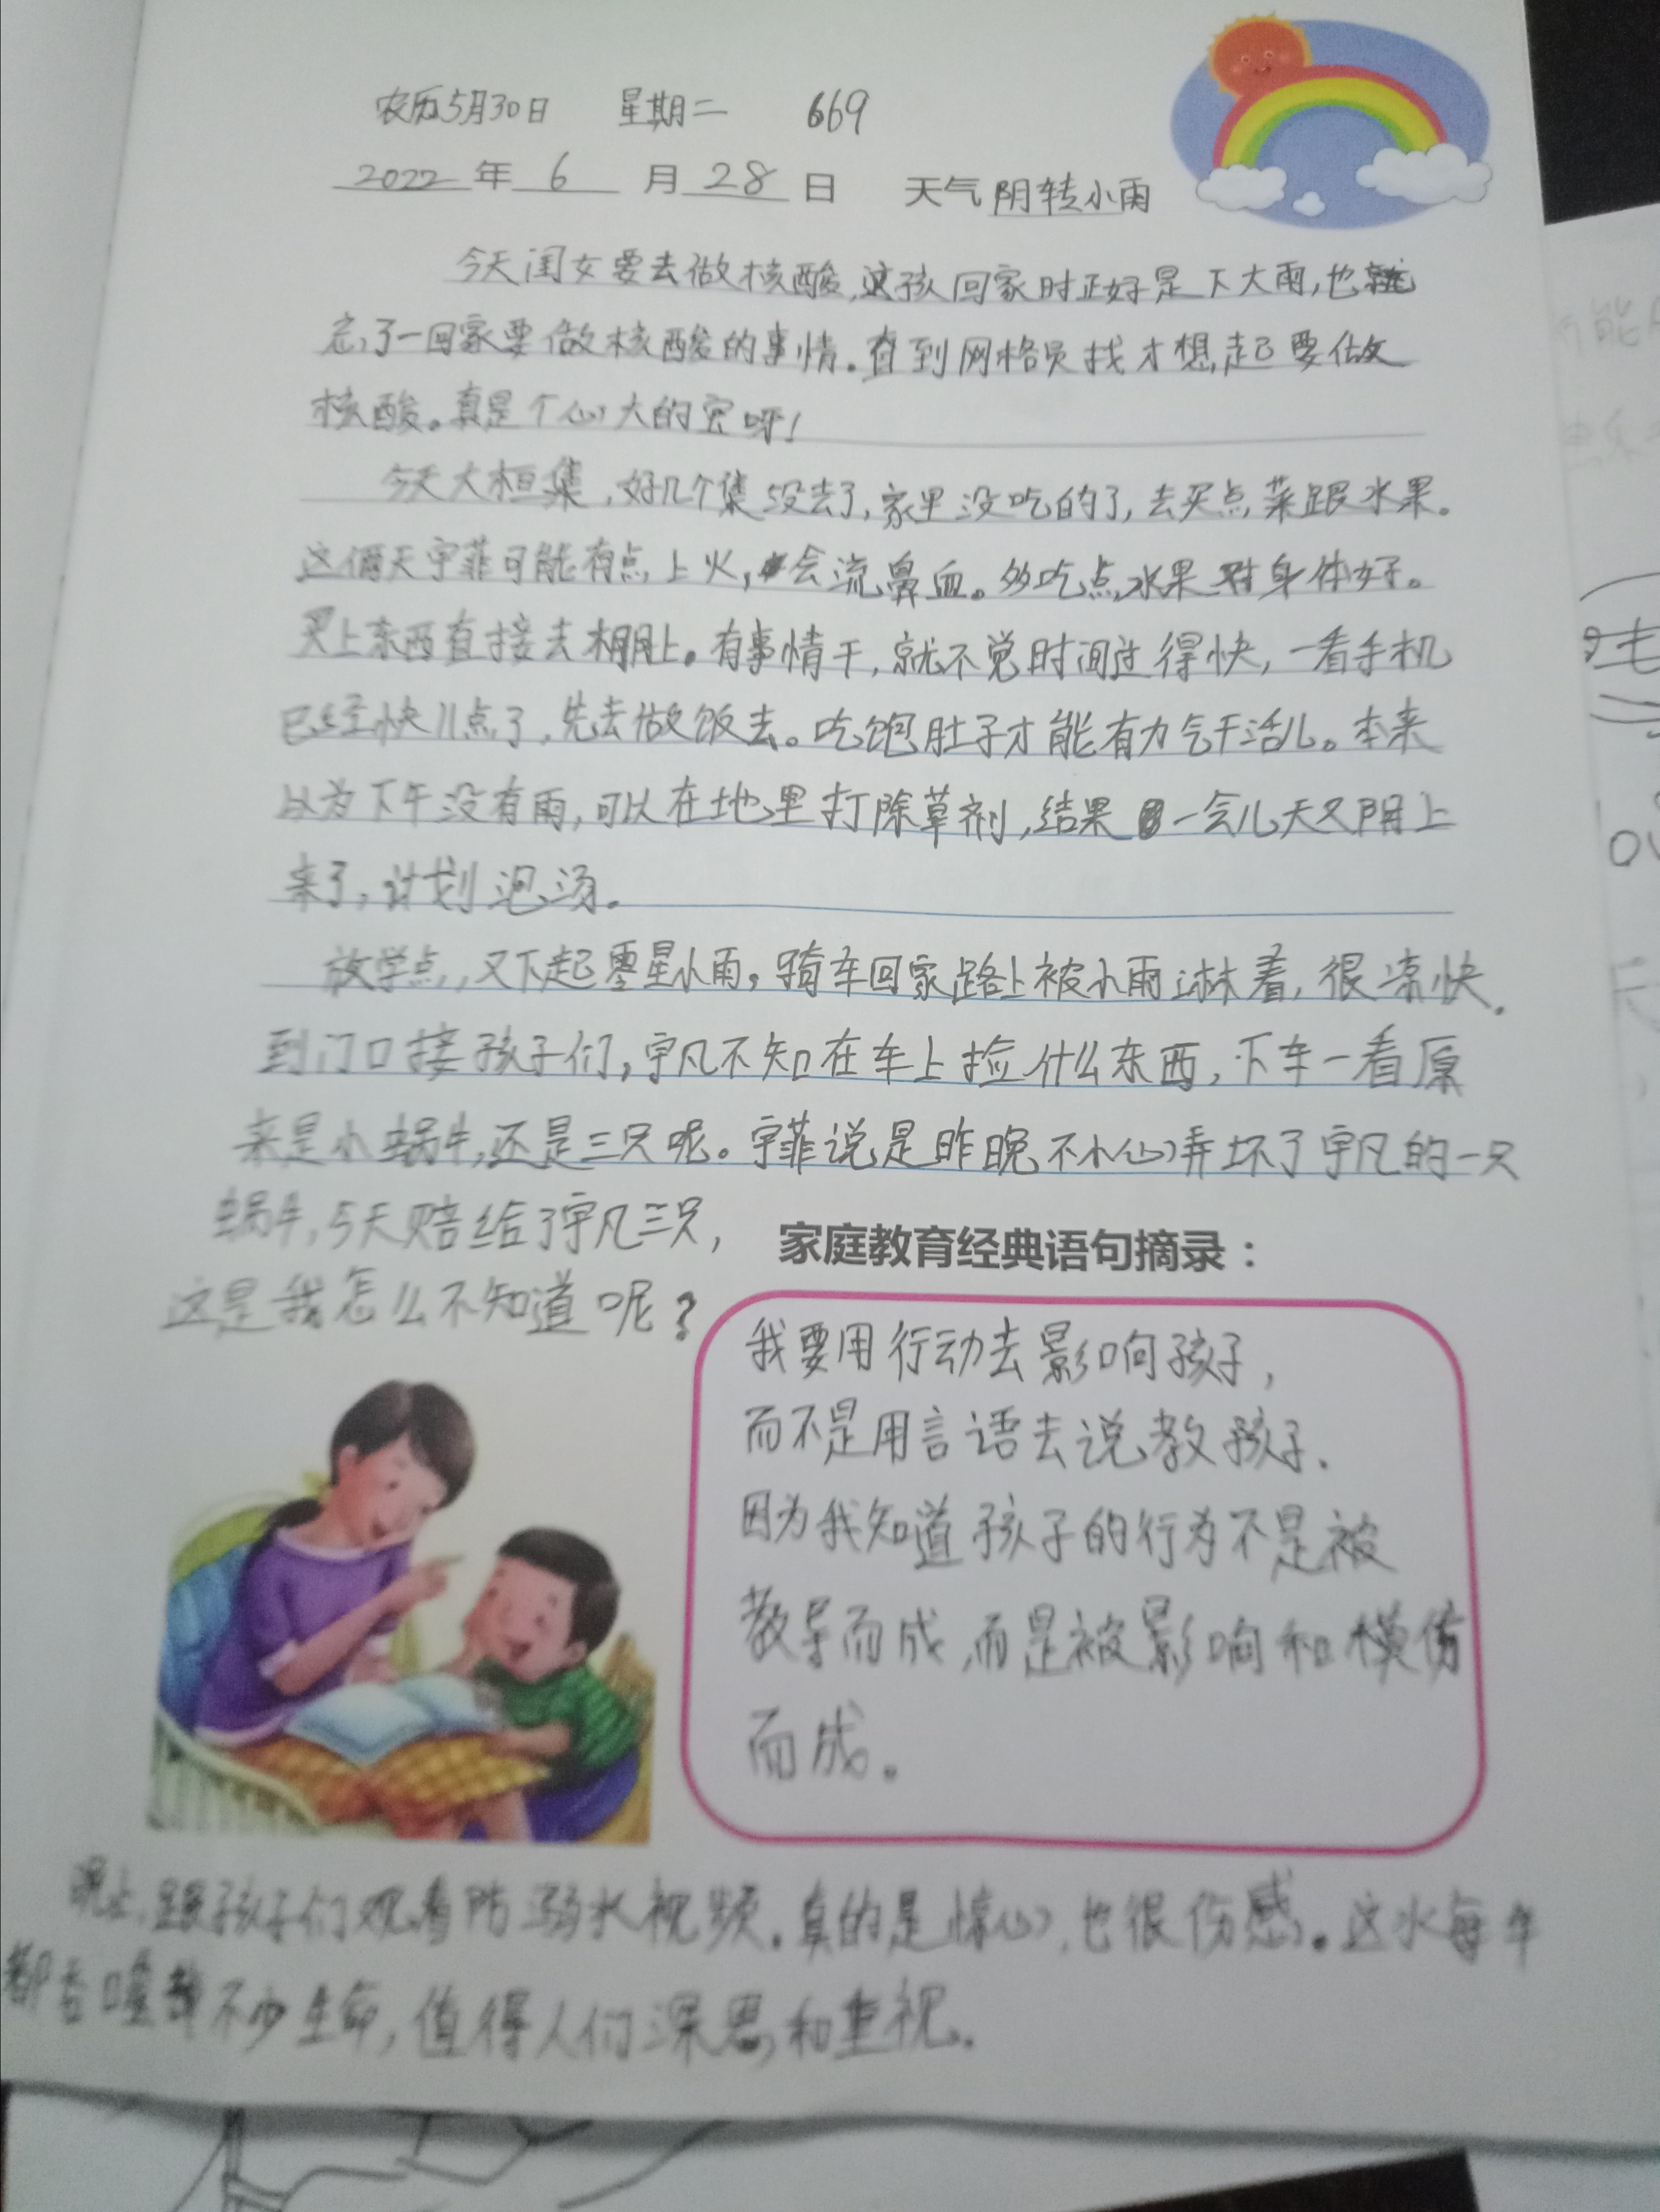 农历5月30日 星期二 669
2022年6月28日 天气 阴转小雨
今天闺女要去做核酸,这孩回家时正好是下大雨,也就
忘了一回家要做核酸的事情。直到网格员找才想起要做
核酸。真是个心大的宝呀!
今天大桓集,好几个集没去了,家里没吃的了,去买点菜跟水果。
这俩天宇菲可能有点上火,会流鼻血。多吃点水果对身体好。
买上东西直接去棚上。有事情干,就不觉时间过得快,一看手机
已经快儿点了,先去做饭去。吃饱肚子才能有力气干活儿。本来
以为下午没有雨,可以在地里打除草剂,结果一会儿天又阴上
来了,计划泡汤。
放学点,又下起零星小雨,骑车回家路上被小雨淋着,很凉快。
到门口接孩子们,宇凡不知在车上捡什么东西,下车一看原
来是小蜗牛,还是三只呢。宇菲说是昨晚不小心弄坏了宇凡的一只
蜗牛,今天赔给了宇凡三只,
这是我怎么不知道呢?
家庭教育经典语句摘录:
我要用行动去影响孩子,
而不是用言语去说教孩子.
因为我知道孩子的行为不是被
教导而成,而是被影响和模仿
而成。
晚上,跟孩子们观看防溺水视频.真的是惊心,也很伤感。这水每年
都吞噬不少生命,值得人们深思和重视.